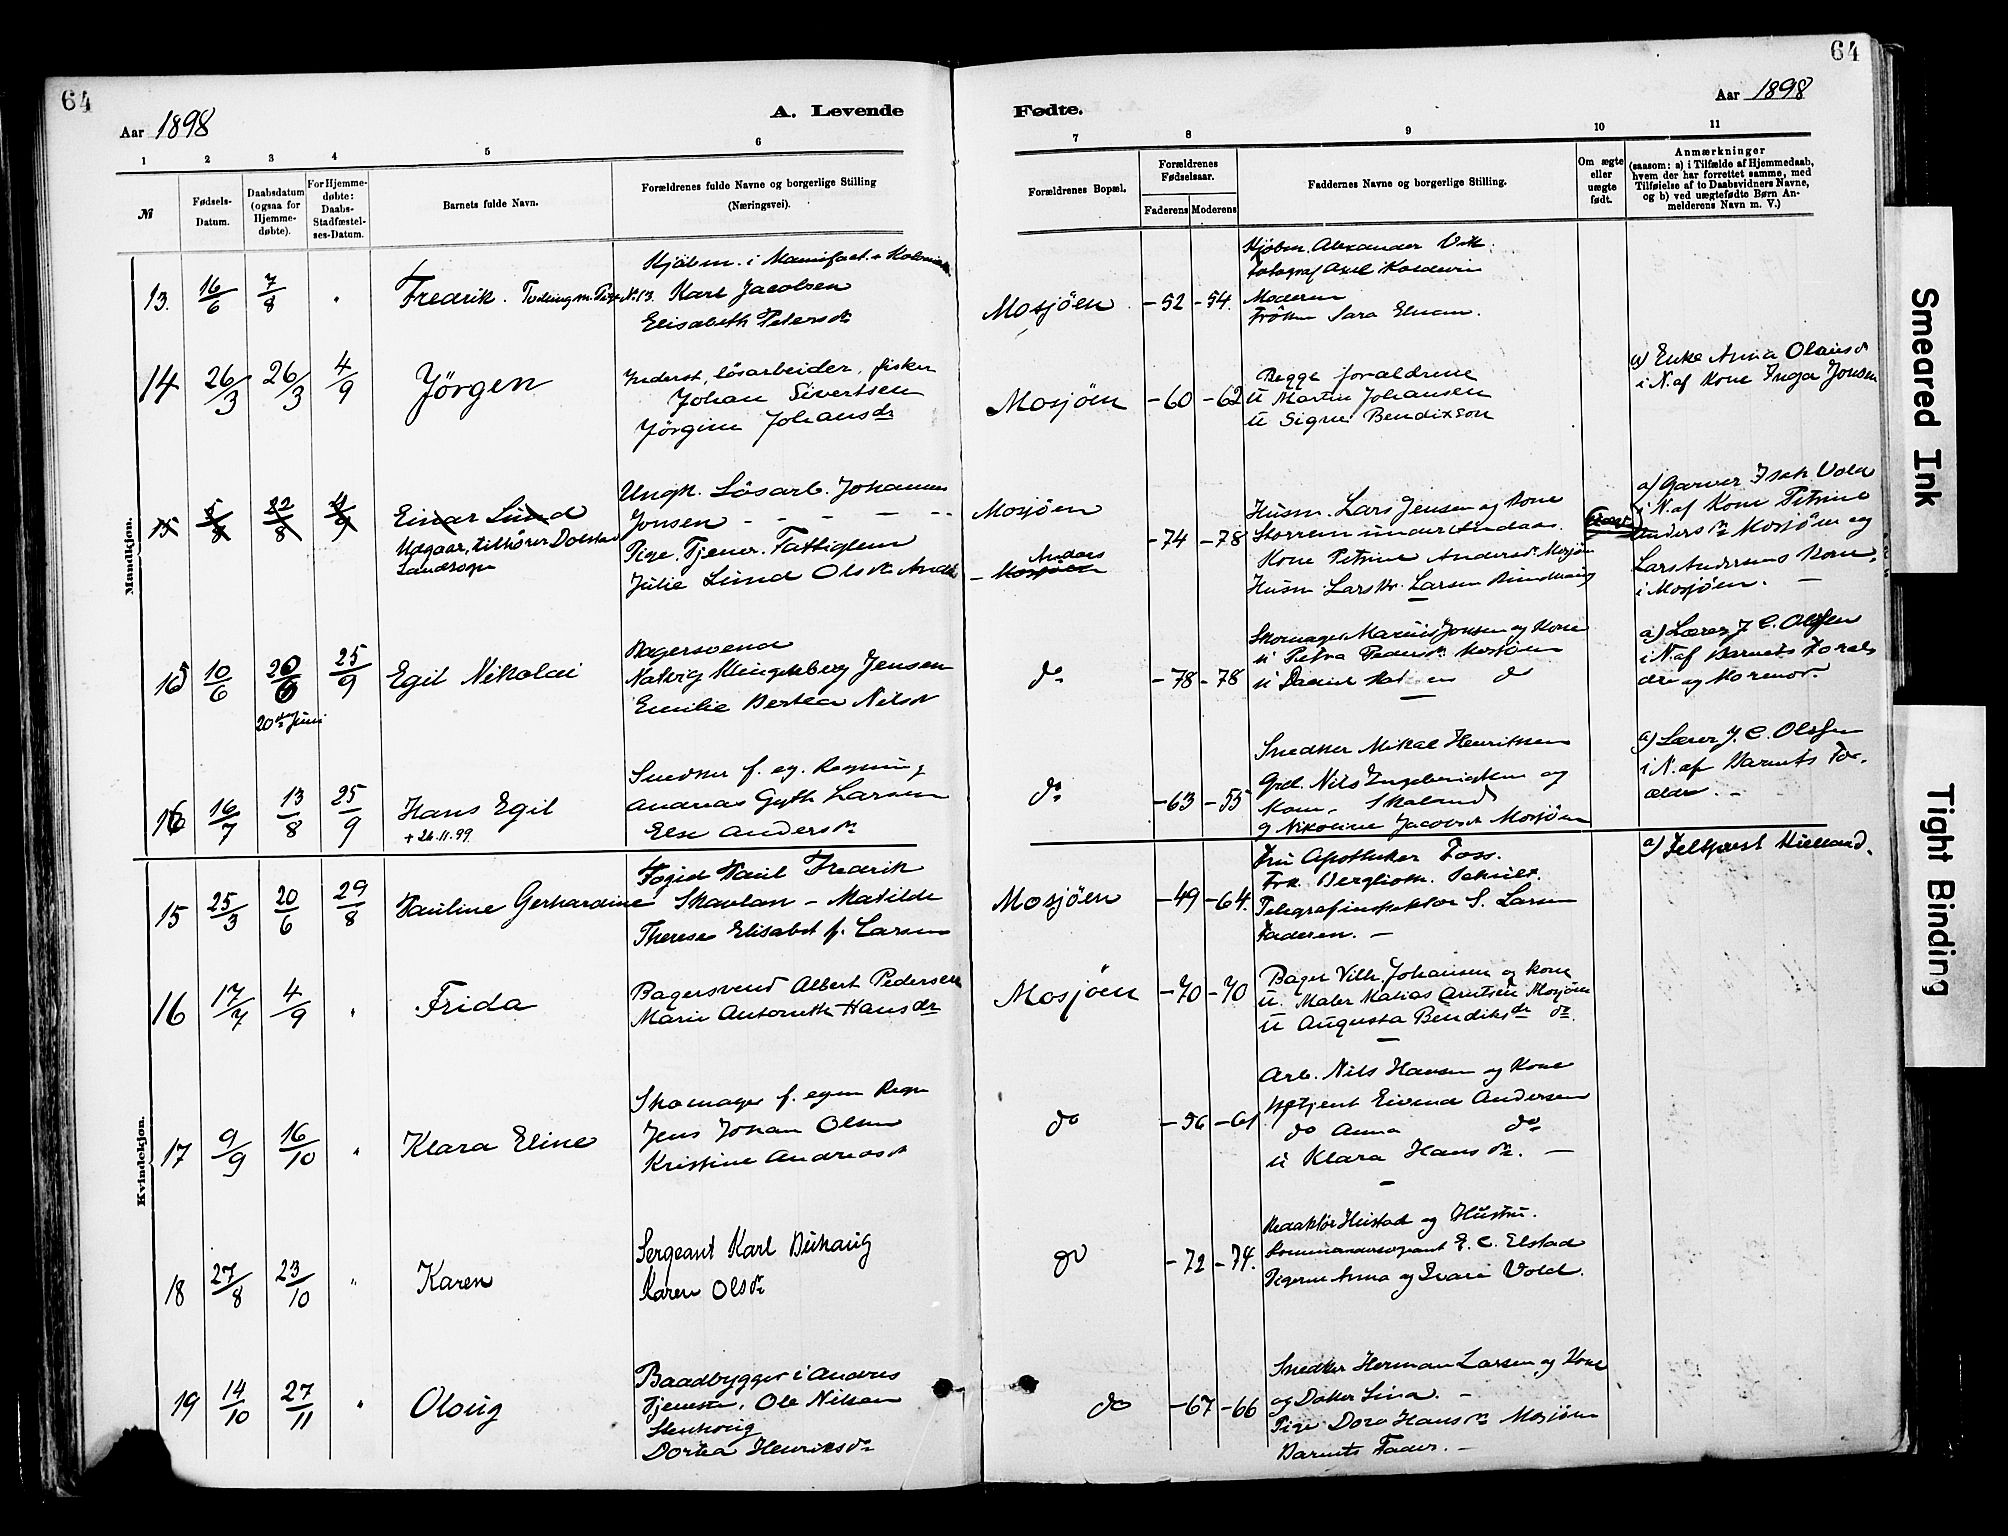 64
Aar 1898
A. Levende
1
2
3
4
5
6
№
Fødsels-
Datum.
Daabsdatum
(ogsaa for
Hjemme-
døbte).
For Hjemme-
døbte:
Daabs-
Stadfæstel-
ses-Datum.
Barnets fulde Navn.
Forældrenes fulde Navne og borgerlige Stilling
(Næringsvei).
Mandkjøn.
13. 16/6 7/8 " Fredrik. Tvilling m. Pige N. 13.
Kjøbm. i Manufact. & Kolonial
Karl Jacobsen
Elisabeth Petersdr
14 26/3 26/3 4/9 Jörgen
Inderst, lösarbeider, fisker
Johan Sivertsen
Jörgine Johansdr
15 5/8 22/8 4/9 Einar Lund
Udgaar, tilhører Dolstad
Landsogn
Ungk. Lösarb. Johannes
Jonsen - - - - -
Pige. Tjener. Fattiglem
Julie Lund Olsdr
15 10/6 20/6 25/9 Egil Nikolai
20de Juni
Bagersvend
Nalvig Klingenberg Jensen
Emilie Bertea Nilsdr
16 16/7 13/8 25/9 Hans Egil
+ 26.11.99
Snedker f. eg. Regning
Andreas Gyth Larsen
Else Andersdr
Kvindekjøn.
15 25/3 20/6 29/8 Pauline Gerhardine
Foged Paul Fredrik
Skavlan - Matilde
Therese Elisabet f. Larsen
16 17/7 4/9 " Frida
Bagersvend Albert Pedersen
Marie Antonette Hansdr
17 9/9 16/10 " Klara Eline
Skomager f. egen Regn
Jens Johan Olsen
Kristine Andreasdr
18 27/8 23/10 " Karen
Sergeant Karl Buhaug
Karen Olsdr
19 14/10 27/11 " Oloug
Baadbygger i Andres
Tjeneste, Ole Nilsen
Stenhoug
Dortea Henriksdr
64
Fødte.
Aar 1898
7
8
9
10
11
Forældrenes Bopæl.
Forældrenes
Fødselsaar.
Faderens
Moderens
Faddernes Navne og borgerlige Stilling.
Om ægte
eller
uægte
født.
Anmærkninger
(saasom: a) i Tilfælde af Hjemmedaab,
hvem der har forrettet samme, med
Tilføielse af to Daabsvidners Navne,
og b) ved uægtefødte Børn An-
melderens Navn m. V.)
Mosjöen -52 -54.
Kjöbm. Alexander Vik
Fotograf Axel
Moderen
Fröken Sara
Mosjöen -60 -62
Begge forældrene
U Martin Johansen
U Signe Bendixson
a) Enke Anna Olausdr
i N. af Kone Inga Jonsen
Mosjöen
-74 -78
- Mosjöen
Husm. Lars Jensen og Kone
Kone Petrine Andersdr Mosjöen
Husm. Lars Kr. Larsen
a) Garver Isak Vold
i N. af Kone Petrine
Andersdr Mosjöen og
Lars Andersens Kone
i Mosjöen. -
do -78 -78
Skomager Marius Jonsen og Kone
U Petra Pedersdr Mosjöen
U Daniel do
a) Lærer J. C. Olsen
i N. af Barnets Foræl-
dre og Mormor.
do -63 -55
Snedker Mikal Henriksen
Grd. Nils Engebrigtsen og
Kone,
og Nikoline Jacobsdr Mosjöen
a) Lærer J. C. Olsen
i N. af Barnets For-
ældre. -
Mosjöen -49 -64.
Fru Apotheker Foss.
Frk. Bergliot
Telegrafinspektör S. Larsen
Faderen. -
a) Feltpræst Kielland.
Mosjöen -70 -70
Bager Vilh. Johansen og kone
U. Maler Matias Arntsen Mosjöen
U Augusta Bendiksdr do.
do -56 -61
Arb. Nils Hansen og Kone
Eivind Andersen
do Anna do
U Klara Hansdr. -
do -72 -74.
Redaktör Hustad og Hustru.
Kommandersergeant E. C. Elstad
Pigerne Anna og Ivara Vold.
do -67 -66
Snedker Herman Larsen og Kone
og Datter Lina. -
Pige Dora Hansdr Mosjöen
Barnets Fader. -
Smeared Ink
Tight Binding